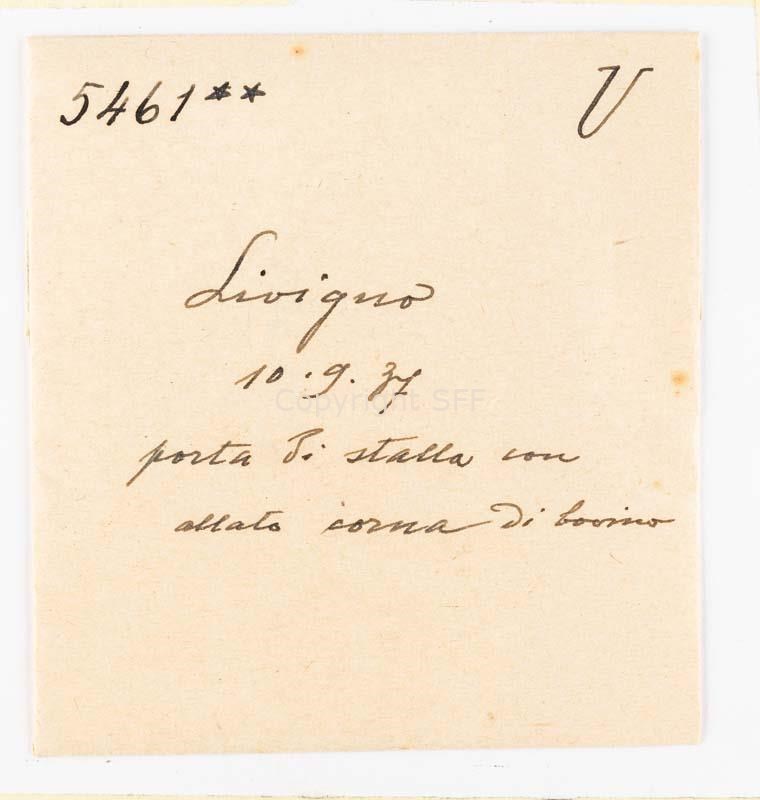 5461** V
Livigno
10.9.37
Copyright SFF
porta di stalla con
allato corna di bovino